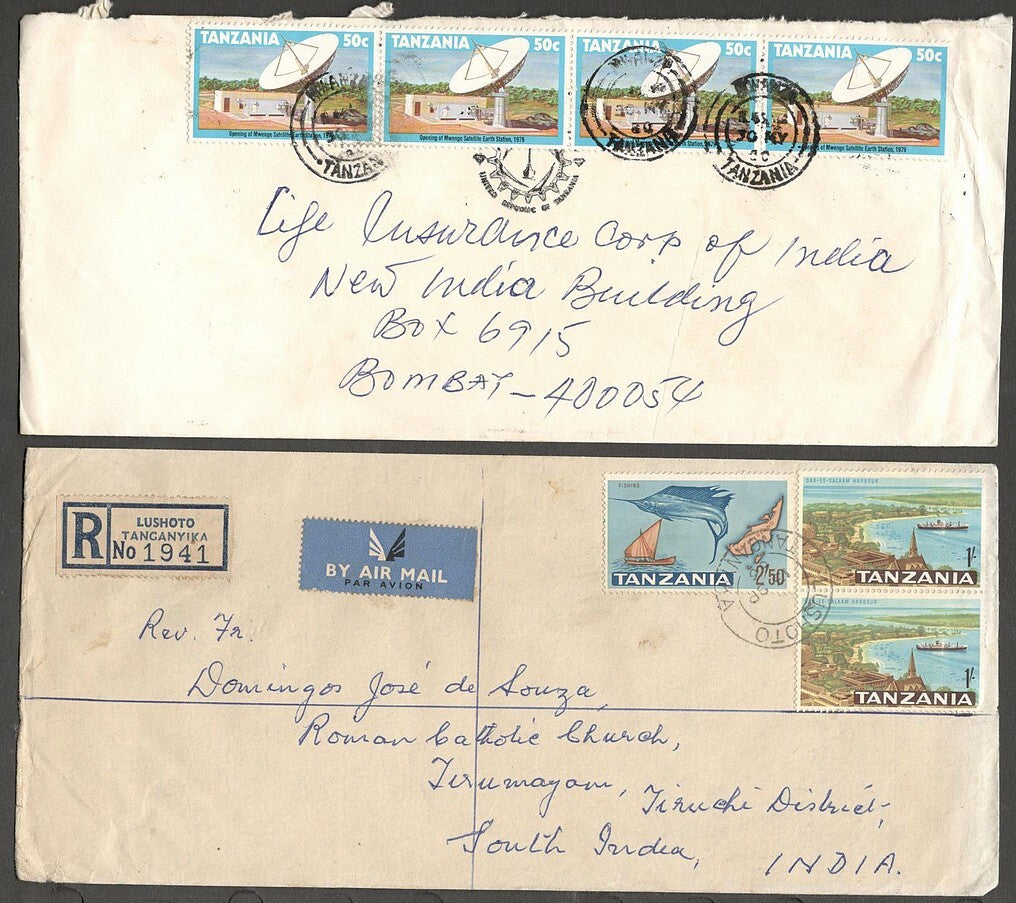 TANZANIA 50c TANZANIA 50c TANZANIA 50c TANZANIA 50c
Opening of Mwenge Satellite Earth Station, 1979
Opening of Mwenge Satellite Earth Station, 1979
Opening of Mwenge Satellite Earth Station, 1979
Opening of Mwenge Satellite Earth Station, 1979
TANZANIA
30 MY
80
TANZANIA
30 MY
80
TANZANIA
UNITED REPUBLIC OF TANZANIA
Life Insurance Corp of India
New India Building
BOX 6915
BOMBAY - 400054
R
LUSHOTO
TANGANYIKA
No 1941
BY AIR MAIL
PAR AVION
FISHING
TANZANIA 2/50
DAR-ES-SALAAM HARBOUR
1/-
TANZANIA
DAR-ES-SALAAM HARBOUR
1/-
TANZANIA
LUSHOTO
Rev. Fr.
Domingos José de Souza,
Roman Catholic Church,
Tirumayam, Tiruchi District,
South India, INDIA.